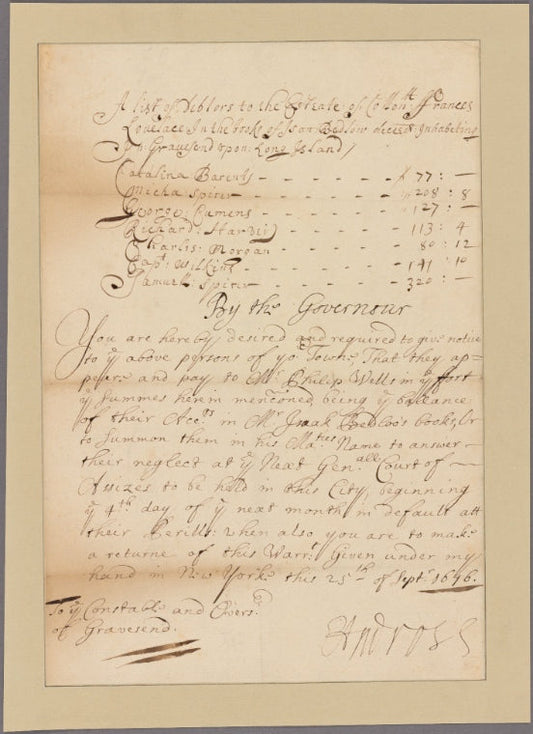 A list of Debtors to the Estate of Collon:ll ffrances
Lovelace In the books of Isaa: Bedlow deceas'd Inhabeting
In: Gravesend upon: Long Island /
Catalina Bareuls - - - - - - - 77 : —
Micha Spicer - - - - - - - 208 : 8
George: Cumens - - - - - - - 127 : —
Richard: Harvie - - - - - - 113 : 4
Charlis: Morgan - - - - - - 80 : 12
Capt: Wilkins - - - - - - 141 : 10
Samuell: Spicer - - - - - - 320 : —
By the Governour
You are hereby desired and required to give notice
to ye above persons of yor Towne, That they ap=
peare and pay to Mr Philip Wells in ye ffort
ye summes herein mencioned, being ye ballance
of their Accots in Mr Isaak Bedloo's books, Or
to Summon them in his Maties Name to answer —
their neglect at ye Next Genall Court of —
Assizes to be held in this City, beginning
ye 4th day of ye next month in default att
their Perills: when also you are to make
a returne of this Warrt Given under my
hand in New Yorke this 25th of Septr 1676.
To ye Constable and Overs:
of Gravesend.
Andross